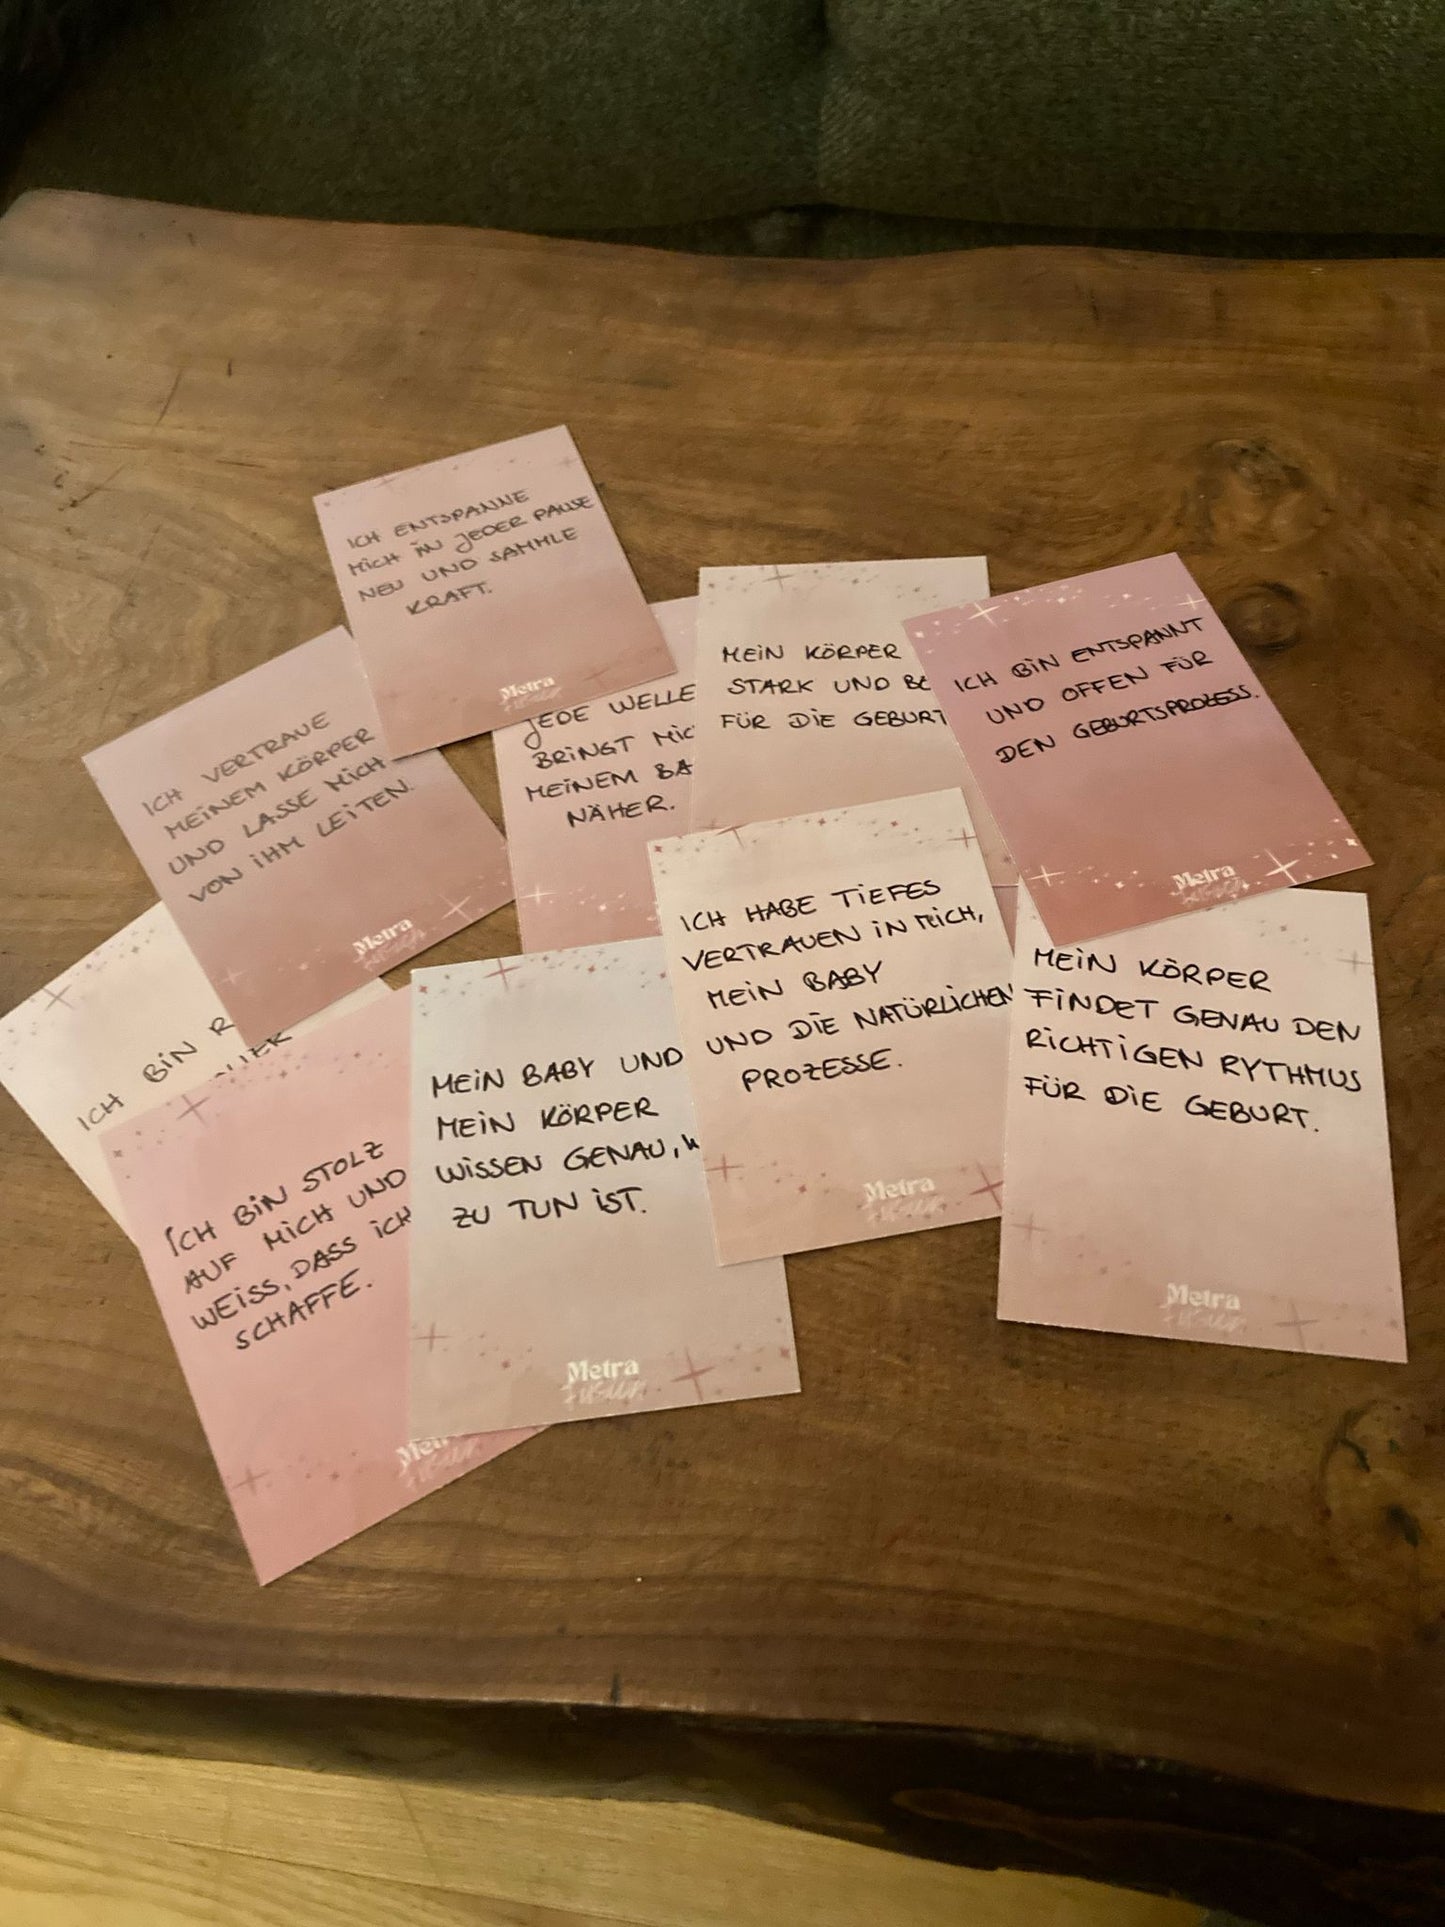 ICH ENTSPANNE
MICH IN JEDER PAUSE
NEU UND SAMMLE
KRAFT.
Metra
fusion
ICH VERTRAUE
MEINEM KÖRPER
UND LASSE MICH
VON IHM LEITEN.
Metra
fusion
JEDE WELLE
BRINGT MIC
MEINEM BA
NÄHER.
MEIN KÖRPER
STARK UND BE
FÜR DIE GEBURT
ICH BIN ENTSPANNT
UND OFFEN FÜR
DEN GEBURTSPROZESS.
Metra
fusion
ICH BIN R
ICH BIN STOLZ
AUF MICH UND
WEISS, DASS ICH
SCHAFFE.
Metra
fusion
MEIN BABY UND
MEIN KÖRPER
WISSEN GENAU, W
ZU TUN IST.
Metra
fusion
ICH HABE TIEFES
VERTRAUEN IN MICH,
MEIN BABY
UND DIE NATÜRLICHEN
PROZESSE.
Metra
fusion
MEIN KÖRPER
FINDET GENAU DEN
RICHTIGEN RYTHMUS
FÜR DIE GEBURT.
Metra
fusion